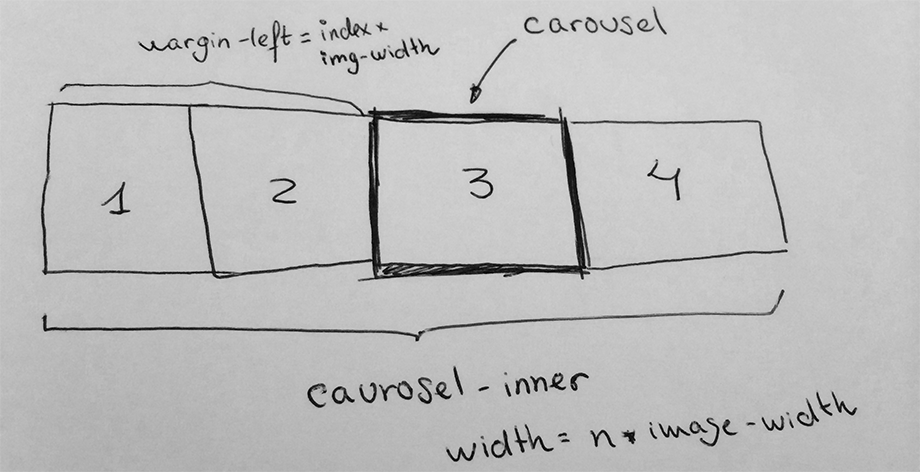 margin-left = index x
img-width
carousel
1 2 3 4
caurosel-inner
width = n * image-width